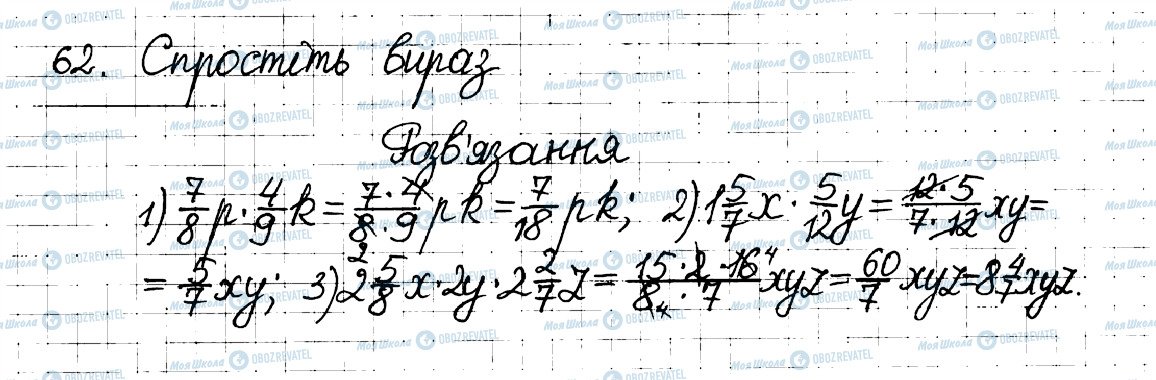 62. Спростіть вираз
Розв'язання
1) 7/8 p · 4/9 k = 7·4/8·9 pk = 7/18 pk; 2) 1 5/7 x · 5/12 y = 12·5/7·12 xy =
2
= 5/7 xy; 3) 2 5/8 x · 2y · 2 2/7 z = 15·2·16 4/8 4·7 xyz = 60/7 xyz = 8 4/7 xyz.
Моя Школа OBOZREVATEL